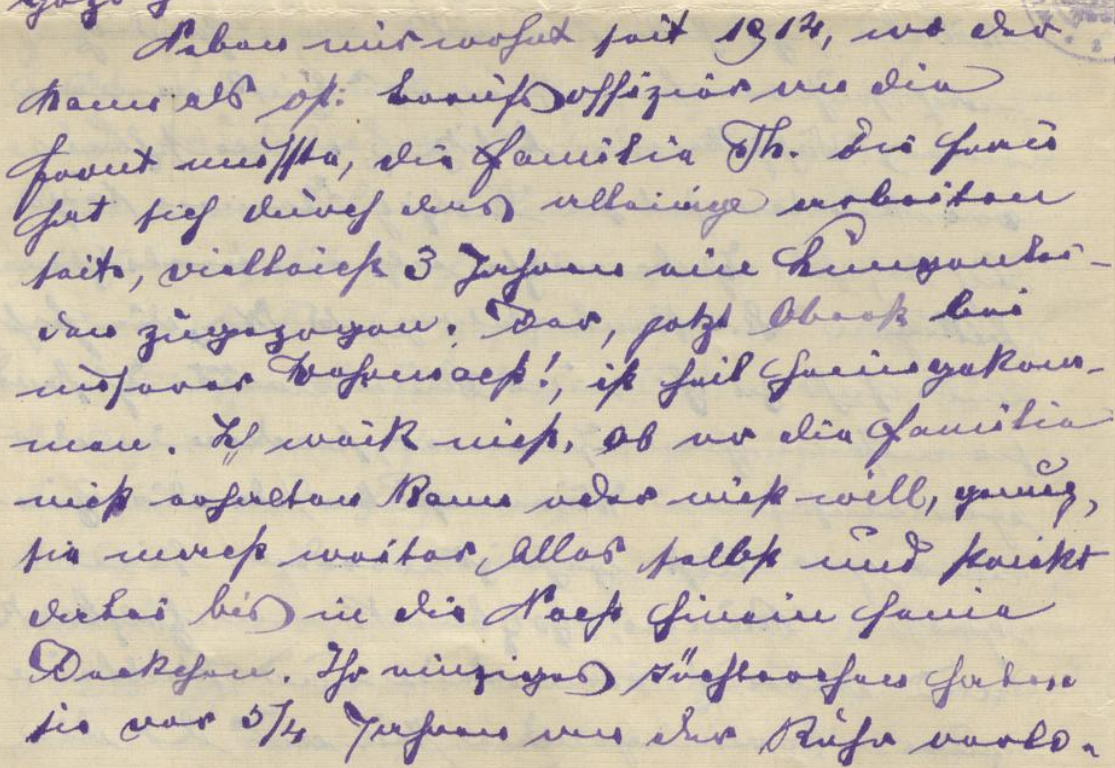 Neben mir wohnt seit 1914, wo der
Mann als öst: Berufsoffizier an die
Front mußte, die Familie Th. Die Frau
hat sich durch das alleinige arbeiten
seit, vielleicht 3 Jahren ein Lungenlei-
den zugezogen. Der, jetzt Oberst bei
unserer Wehrmacht!, ist heil heimgekom-
men. Ich weiß nicht, ob er die Familie
nicht erhalten kann oder nicht will, genug,
sie macht weiter, Alles selbst und strickt
dabei bis in die Nacht hinein feine
Deckchen. Ihr einziges Töchterchen haben
sie vor 5/4 Jahren an der Ruhr verlo-